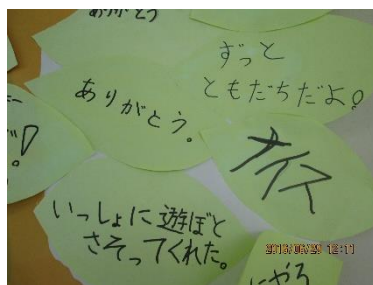 ありがとう
ずっと
ともだちだよ!
ありがとう。
ナイス
いっしょに遊ぼと
さそってくれた。
にやろ
12:11